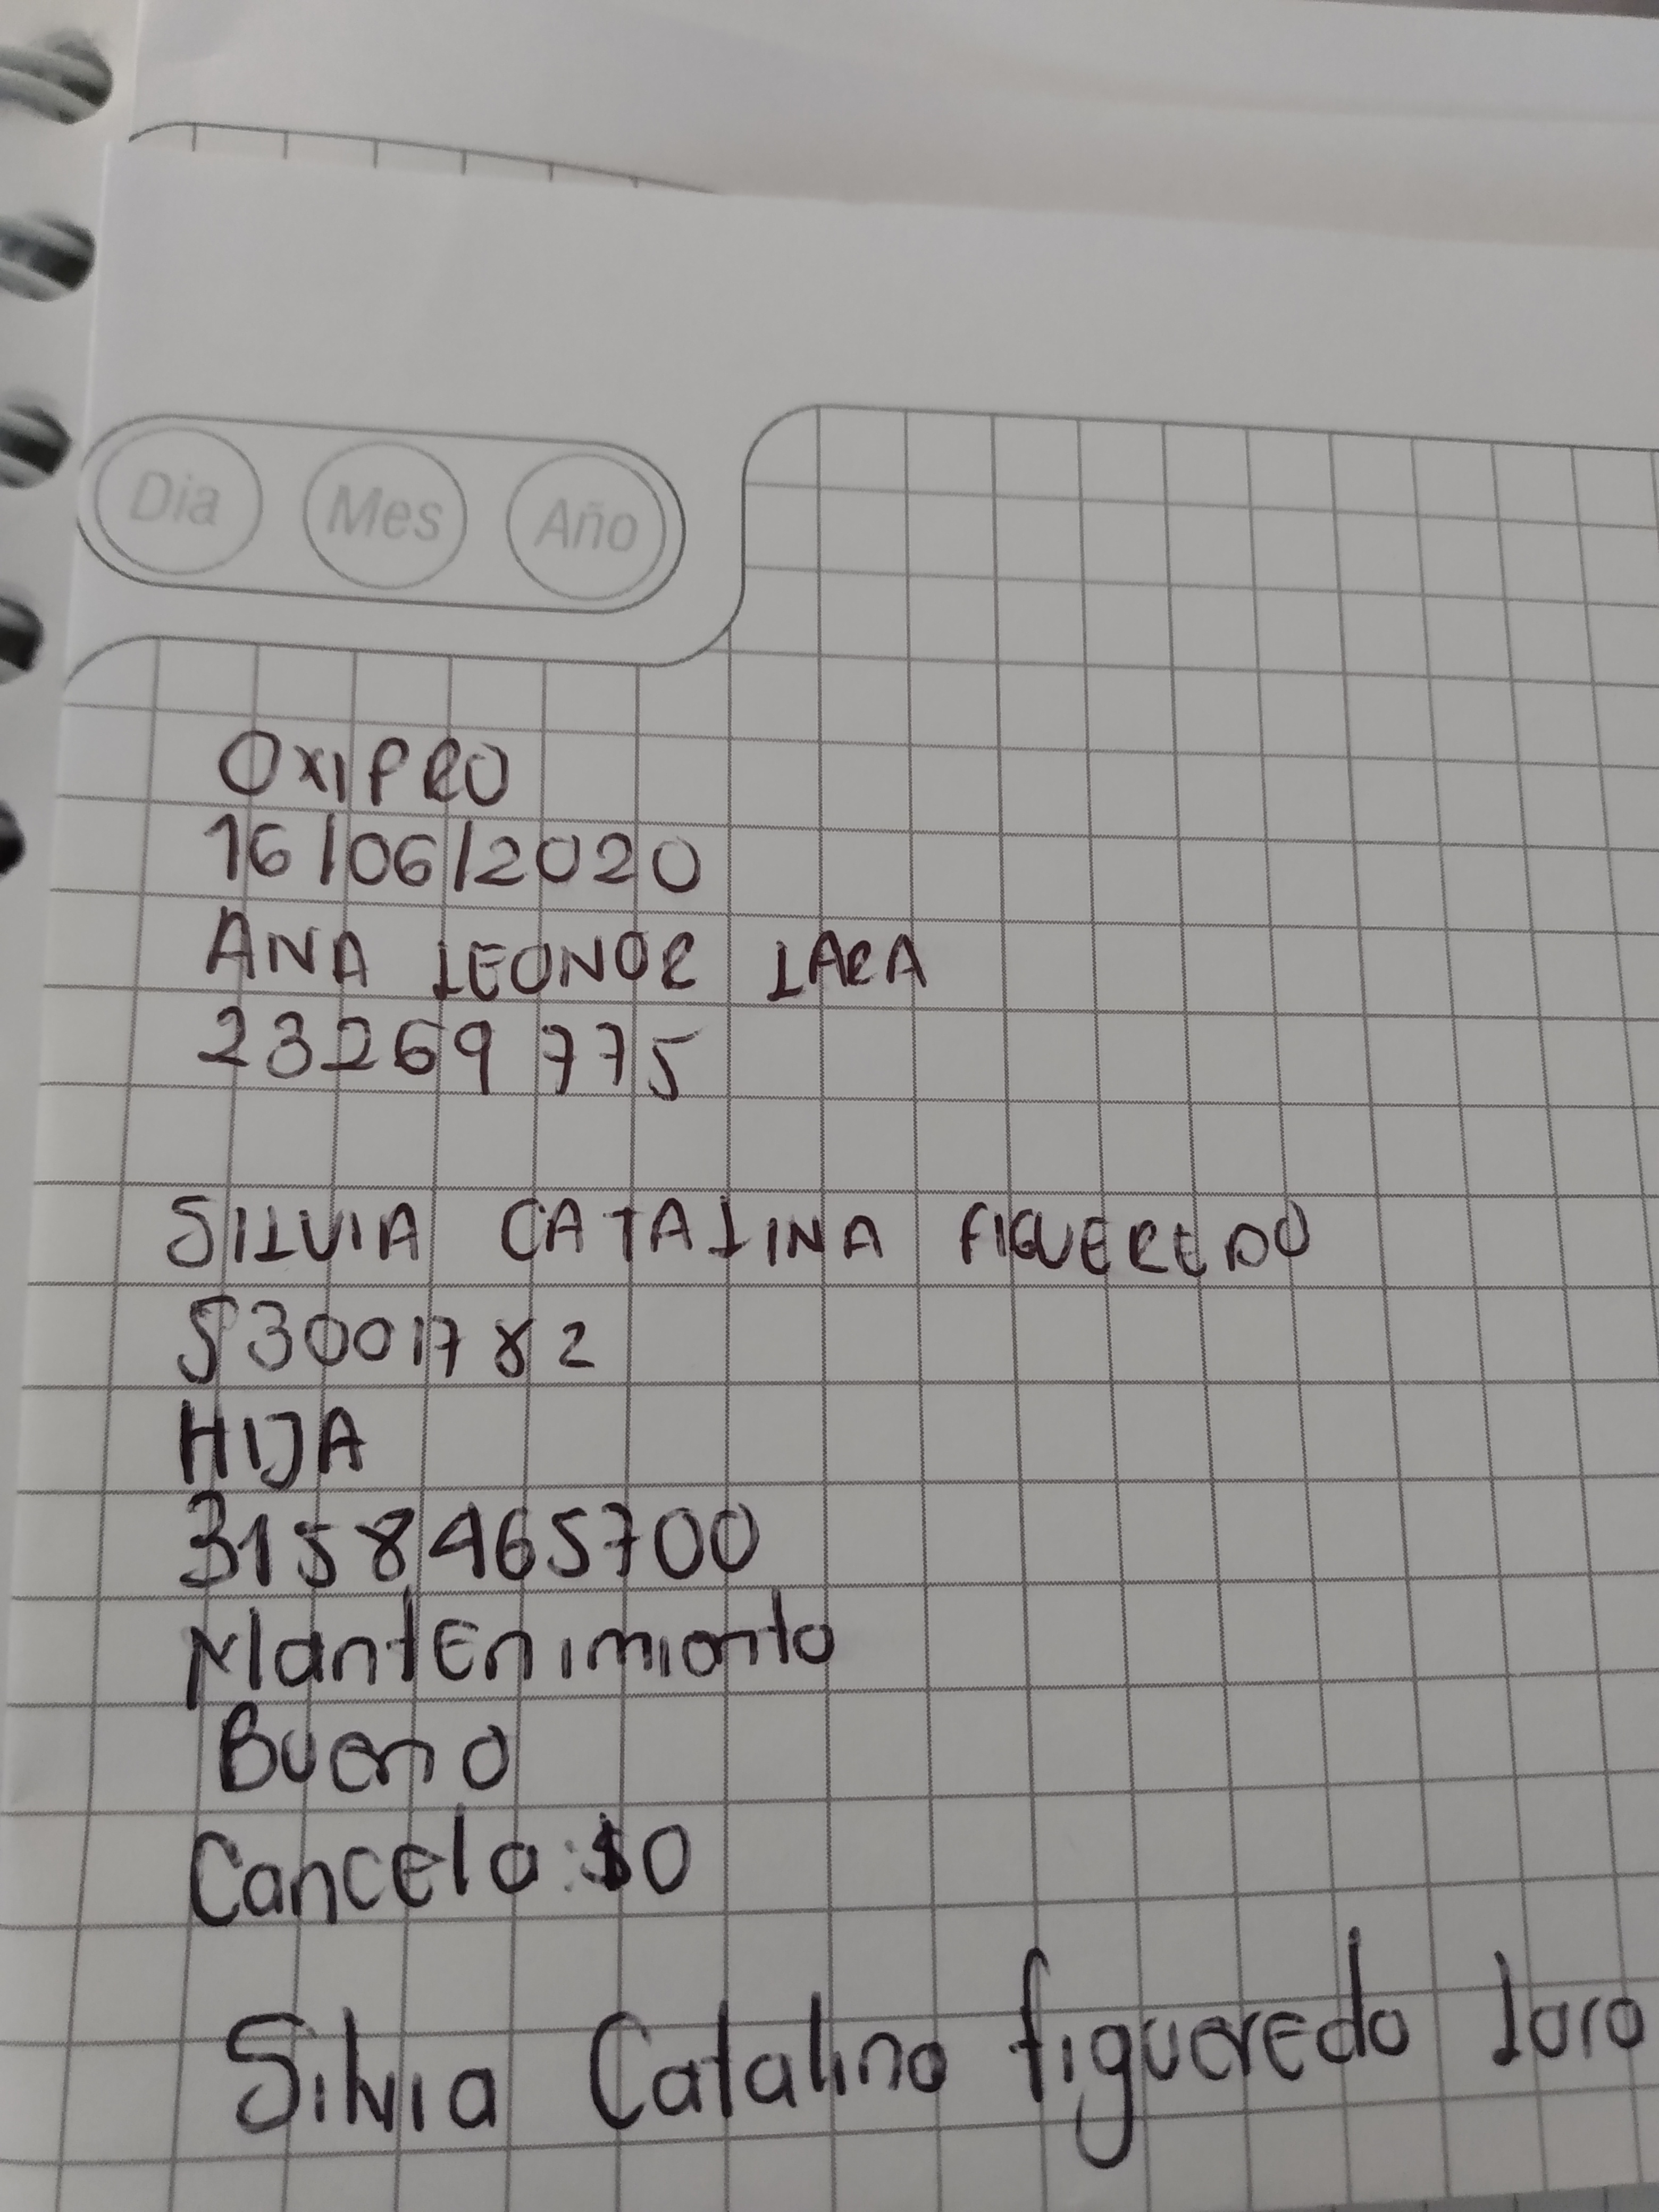 Dia Mes Año
OXIPRO
16/06/2020
ANA LEONOR LARA
23269775
SILVIA CATALINA FIGUEREDO
53001782
HIJA
3158465700
Mantenimiento
Bueno
Cancela: $0
Silvia Catalina figueredo Lara